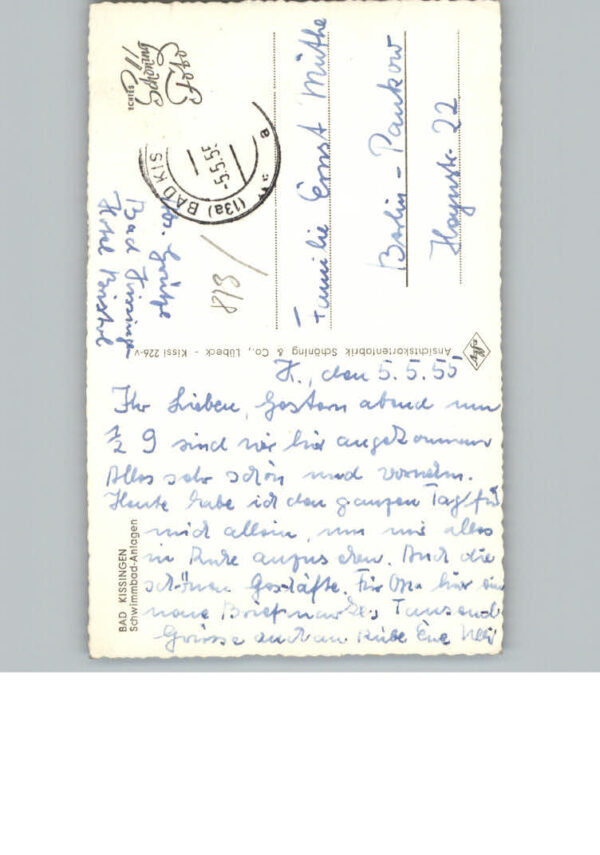 K., den 5.5.55
Ihr Lieben, Gestern abend um
1/2 9 sind wir hier angekommen
Alles sehr schön und vornehm.
Heute habe ich den ganzen Tag für
mich allein, um mir alles
in Ruhe anzusehen. Auch die
schönen Geschäfte. Für Opa hier ein
neue Briefmarke. Tausend
Grüsse auch an Rübe Eure
BAD KISSINGEN
Schwimmbad-Anlagen
Ansichtskartenfabrik Schöning & Co., Lübeck - Kissi 226-v
Agfa
Bad Kissingen
Hotel Bristol
813/
(13a) BAD KIS
-5.5.55
a
Schöning
echtes
Foto
Familie Ernst Müthe
Berlin-Pankow
Haynstr. 22